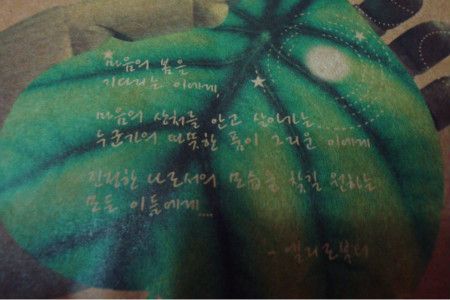 마음의 봄을
기다리는 이에게,
마음의 상처를 안고 살아가는
누군가의 따뜻한 품이 그리운 이에게
진정한 나로서의 모습을 찾길 원하는
모든 이들에게...
- 엘리로부터